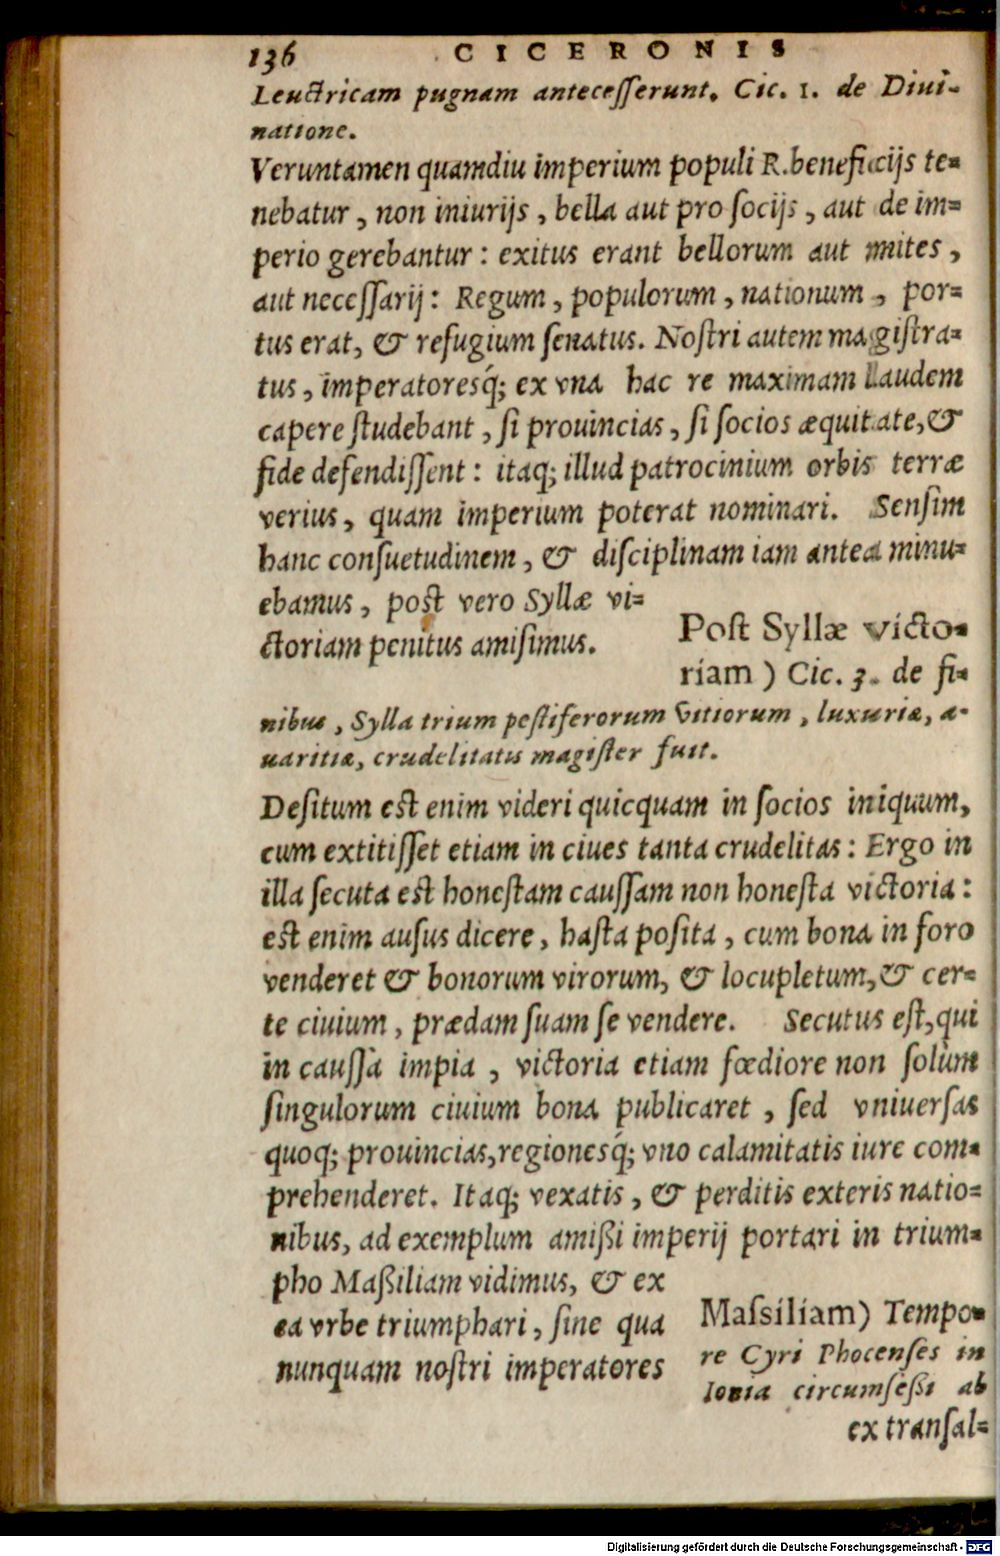 136 CICERONIS
Leuctricam pugnam antecesserunt. Cic. 1. de Diui-
natione.
Veruntamen quamdiu imperium populi R. beneficijs te=
nebatur, non iniurijs, bella aut pro socijs, aut de im=
perio gerebantur: exitus erant bellorum aut mites,
aut necessarij: Regum, populorum, nationum, por=
tus erat, & refugium senatus. Nostri autem magistra=
tus, imperatoresq́; ex vna hac re maximam laudem
capere studebant, si prouincias, si socios æquitate, &
fide defendissent: itaq; illud patrocinium orbis terræ
verius, quam imperium poterat nominari. Sensim
hanc consuetudinem, & disciplinam iam antea minu=
ebamus, post vero Syllæ vi=
ctoriam penitus amisimus.
Post Syllæ victo-
riam) Cic. 3. de fi-
nibus, Sylla trium pestiferorum vitiorum, luxuriæ, a-
uaritiæ, crudelitatis magister fuit.
Desitum est enim videri quicquam in socios iniquum,
cum extitisset etiam in ciues tanta crudelitas: Ergo in
illa secuta est honestam caussam non honesta victoria:
est enim ausus dicere, hasta posita, cum bona in foro
venderet & bonorum virorum, & locupletum, & cer=
te ciuium, prædam suam se vendere. Secutus est, qui
in caussa impia, victoria etiam fœdiore non solùm
singulorum ciuium bona publicaret, sed vniuersas
quoq; prouincias, regionesq́; vno calamitatis iure com-
prehenderet. Itaq; vexatis, & perditis exteris natio=
nibus, ad exemplum amißi imperij portari in trium-
pho Maßiliam vidimus, & ex
ea vrbe triumphari, sine qua
nunquam nostri imperatores
Massiliam) Tempo-
re Cyri Phocenses in
Ionia circumseßi ab
ex transal=
Digitalisierung gefördert durch die Deutsche Forschungsgemeinschaft - DFG